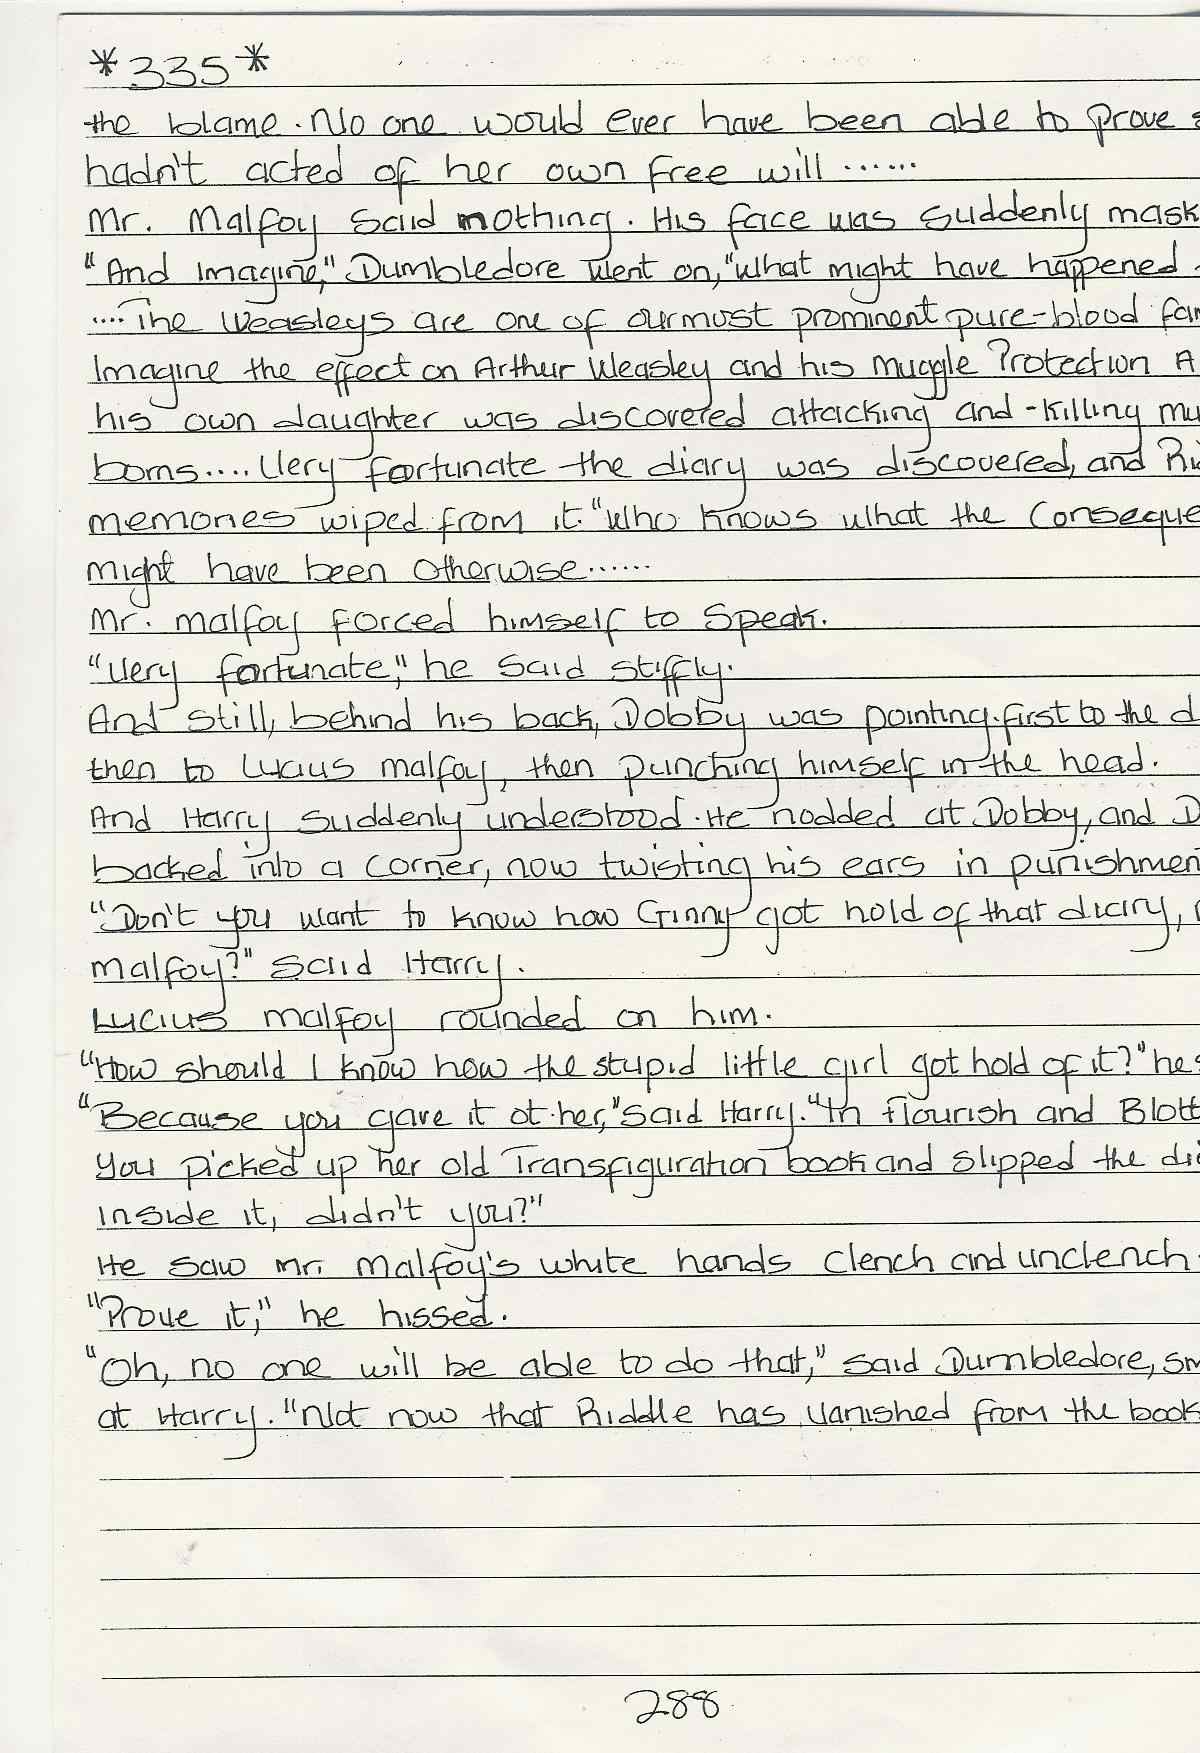 *335*
the blame. No one would ever have been able to prove s
hadn't acted of her own free will ......
Mr. Malfoy said nothing. His face was suddenly mask
"And imagine," Dumbledore went on, "what might have happened
....The Weasleys are one of our most prominent pure-blood fam
Imagine the effect on Arthur Weasley and his muggle Protection A
his own daughter was discovered attacking and -killing mu
borns.... Very fortunate the diary was discovered, and Ri
memories wiped from it. "Who knows what the conseque
might have been otherwise......
Mr. malfoy forced himself to speak.
"Very fortunate," he said stiffly.
And still, behind his back, Dobby was pointing. first to the d
then to Lucius malfoy, then punching himself in the head.
And Harry suddenly understood. He nodded at Dobby, and D
backed into a corner, now twisting his ears in punishmen
"Don't you want to know how Ginny got hold of that diary,
malfoy?" said Harry.
Lucius malfoy rounded on him.
"How should I know how the stupid little girl got hold of it?" he s
"Because you gave it ot her," said Harry. "In Flourish and Blott
You picked up her old Transfiguration book and slipped the di
inside it, didn't you?"
He saw mr. Malfoy's white hands clench and unclench.
"Prove it," he hissed.
"Oh, no one will be able to do that," said Dumbledore, sm
at Harry. "Not now that Riddle has vanished from the book
288